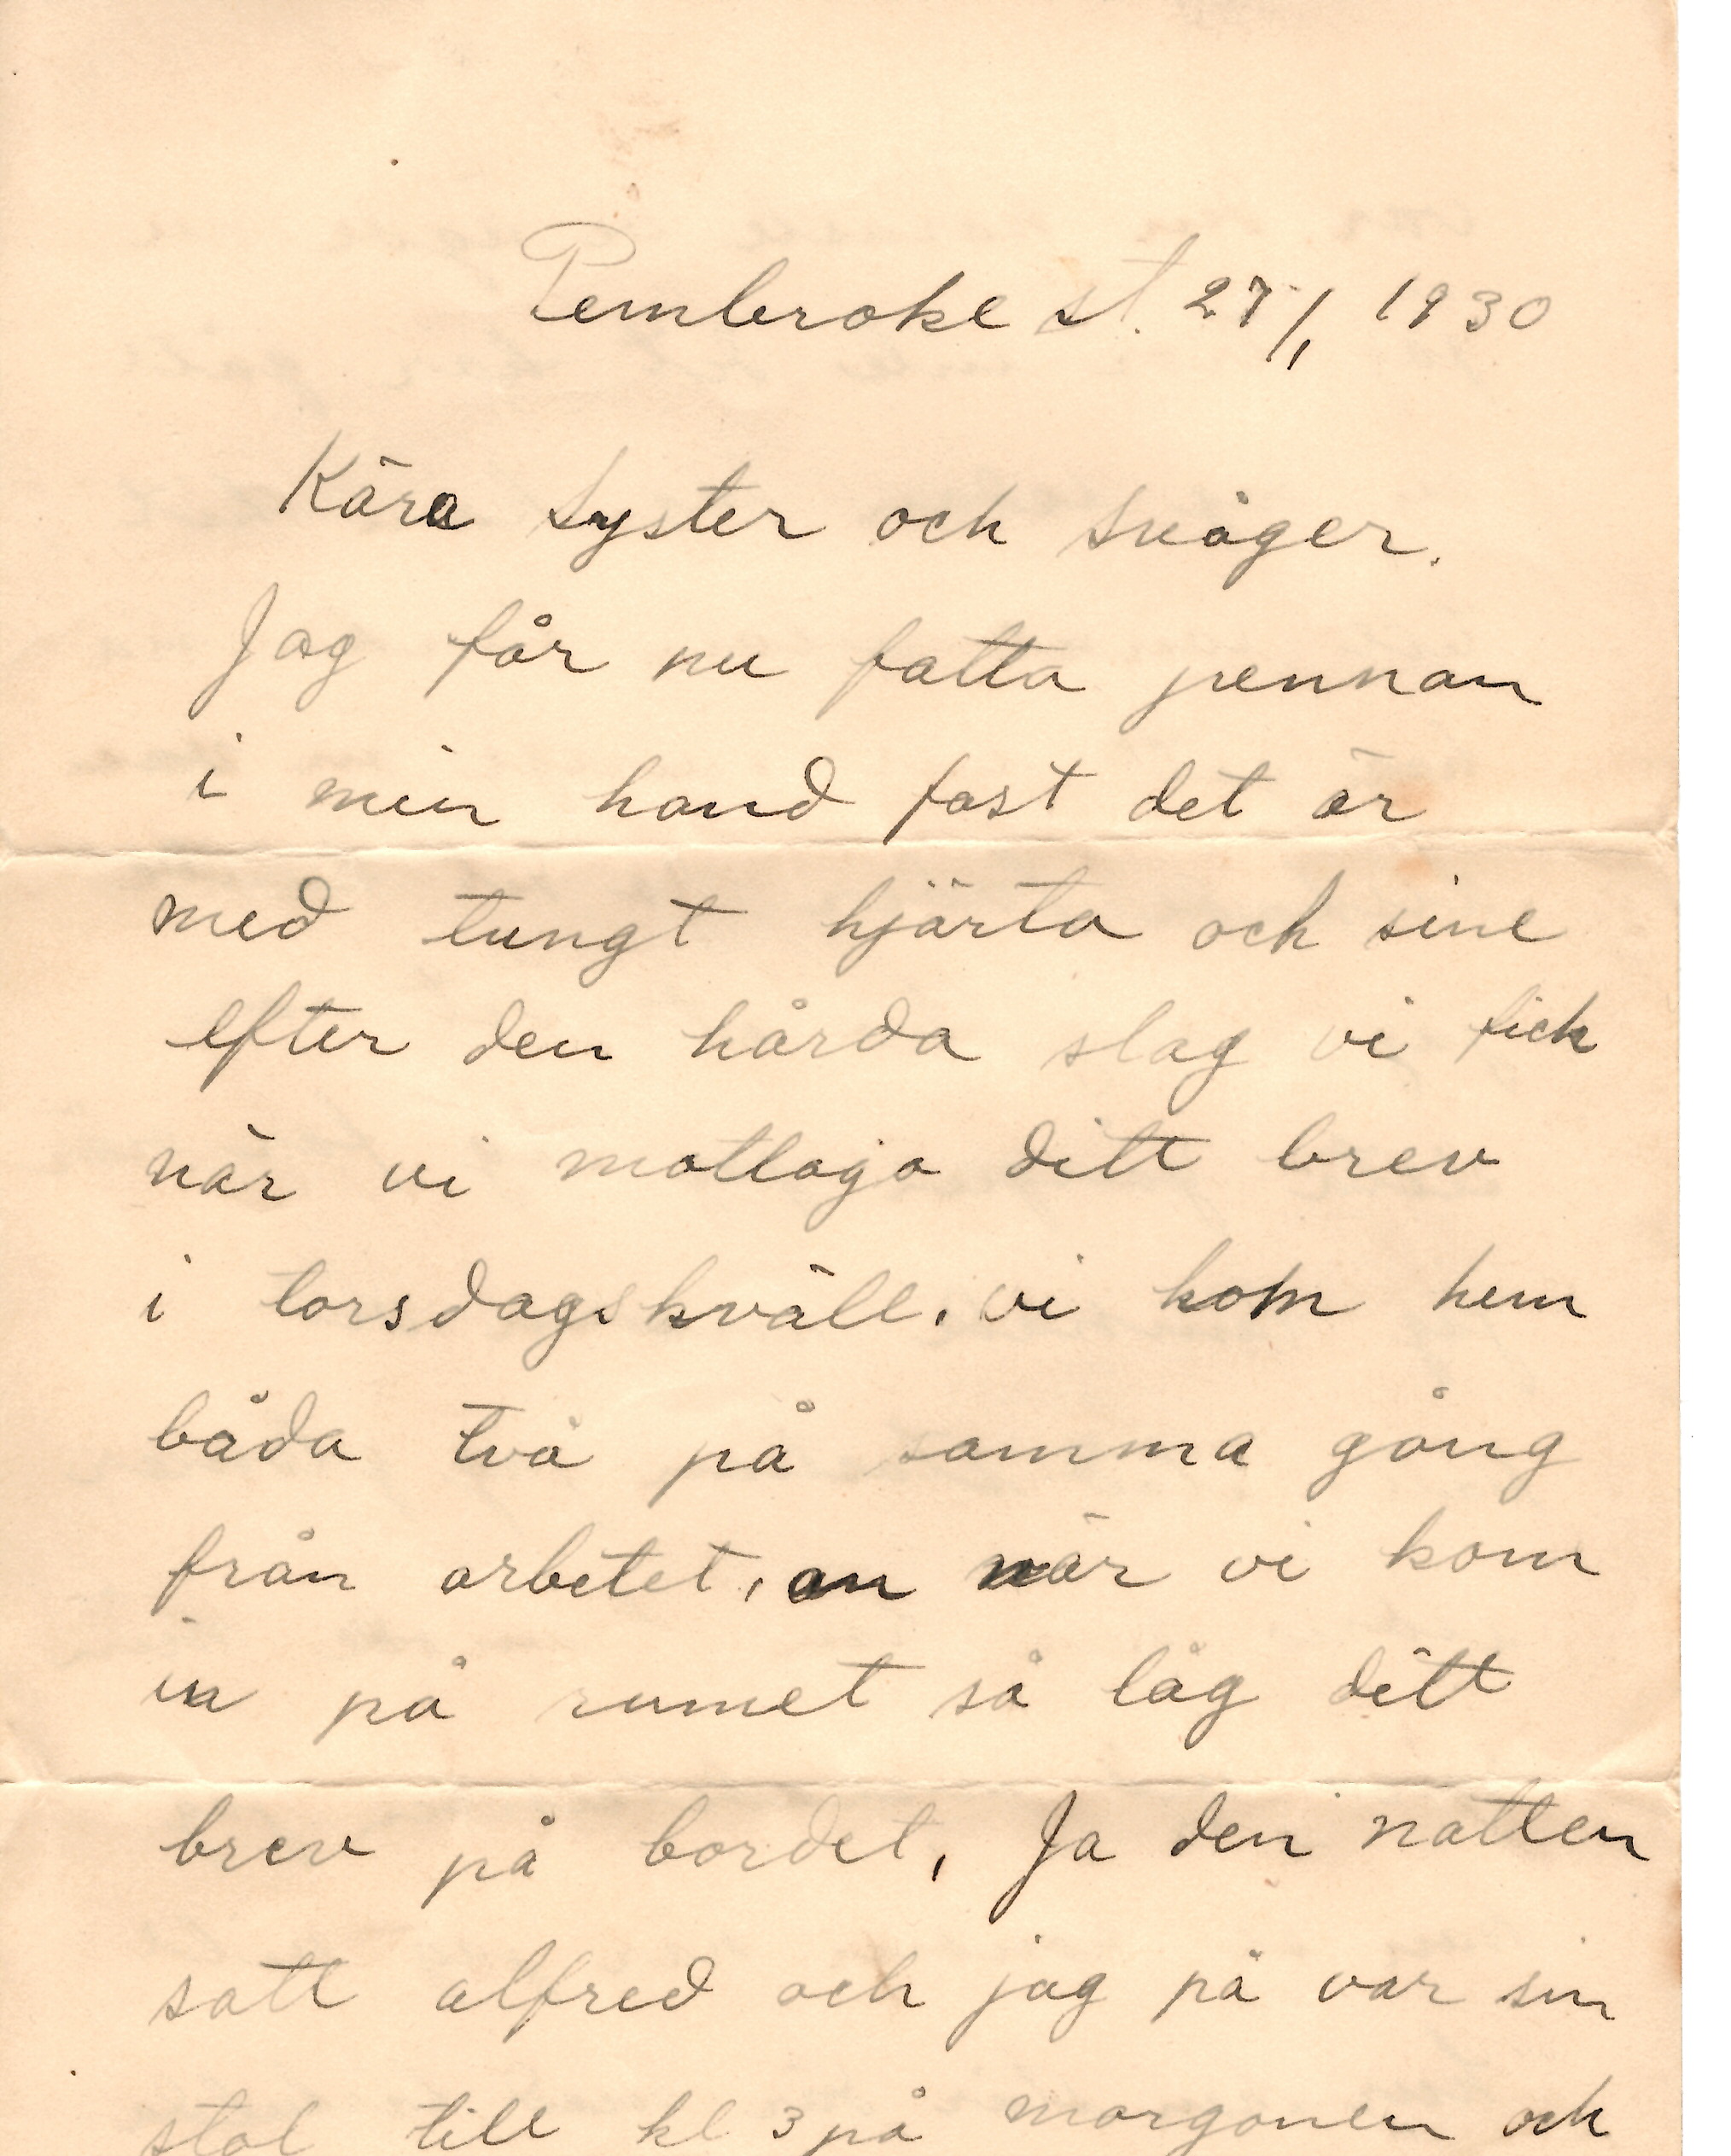 Pembroke st. 27/1 1930
Kära Syster och Svåger.
Jag får nu fatta pennan
i min hand fast det är
med tungt hjärta och sine
efter den hårda slag vi fick
när vi mottoga ditt brev
i torsdagskväll. vi kom hem
båda två på samma gång
från arbetet, an når vi kom
in på rumet så låg ditt
brev på bordet, Ja den natten
satt alfred och jag på var sin
stol till kl 3 på morgonen och